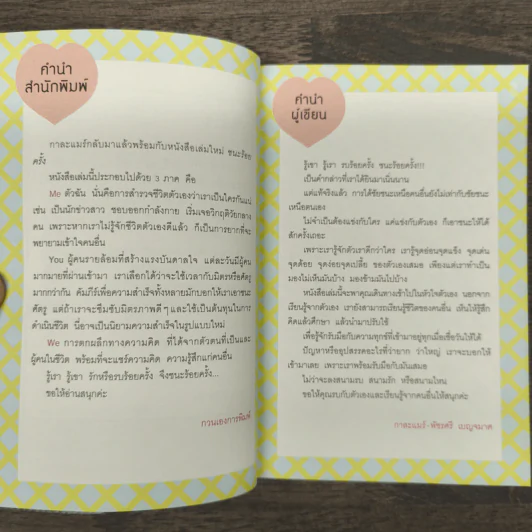 คำนำ
สำนักพิมพ์
กาละแมร์กลับมาแล้วพร้อมกับหนังสือเล่มใหม่ ชนะร้อย
ครั้ง
หนังสือเล่มนี้ประกอบไปด้วย 3 ภาค คือ
Me ตัวฉัน นั่นคือการสำรวจชีวิตตัวเองว่าเราเป็นใครกันแน่
เช่น เป็นนักข่าวสาว ชอบออกกำลังกาย เริ่มเจอวิกฤติวัยกลาง
คน เพราะหากเราไม่รู้จักชีวิตตัวเองดีแล้ว ก็เป็นการยากที่จะ
พยายามเข้าใจคนอื่น
You ผู้คนรายล้อมที่สร้างแรงบันดาลใจ แต่ละวันมีผู้คน
มากมายที่ผ่านเข้ามา เราเลือกได้ว่าจะใช้เวลากับมิตรหรือศัตรู
มากกว่ากัน คัมภีร์เพื่อความสำเร็จทั้งหลายมักบอกให้เราเอาชนะ
ศัตรู แต่ถ้าเราจะซึมซับมิตรภาพดีๆ และใช้เป็นต้นทุนในการ
ดำเนินชีวิต นี่อาจเป็นนิยามความสำเร็จในรูปแบบใหม่
We การตกผลึกทางความคิด ที่ได้จากตัวตนที่เป็นและ
ผู้คนในชีวิต พร้อมที่จะแชร์ความคิด ความรู้สึกแก่คนอื่น
รู้เรา รู้เขา รักหรือรบร้อยครั้ง จึงชนะร้อยครั้ง...
ขอให้อ่านสนุกค่ะ
กวนเองการพิมพ์
คำนำ
ผู้เขียน
รู้เขา รู้เรา รบร้อยครั้ง ชนะร้อยครั้ง!!!
เป็นคำกล่าวที่เราได้ยินมาเนิ่นนาน
แต่แท้จริงแล้ว การได้ชัยชนะเหนือคนอื่นยังไม่เท่ากับชัยชนะ
เหนือตนเอง
ไม่จำเป็นต้องแข่งกับใคร แค่แข่งกับตัวเอง ก็เอาชนะให้ได้
สักครั้งเถอะ
เพราะเรารู้จักตัวเราดีกว่าใคร เรารู้จุดอ่อนจุดแข็ง จุดเด่น
จุดด้อย ของตัวเองเสมอ เพียงแต่เราจำเป็น
มองไม่เห็นมันบ้าง มองข้ามมันไปบ้าง
หนังสือเล่มนี้จะพาคุณเดินทางเข้าไปในหัวใจตัวเอง นอกจาก
เรียนรู้จากตัวเอง เรายังสามารถเรียนรู้ชีวิตของคนอื่น เห็นให้รู้สึก
คิดแล้วศึกษา แล้วนำมาปรับใช้
เพื่อรู้จักรับมือกับความทุกข์ที่เข้ามาอยู่ทุกเมื่อเชื่อวันให้ได้
ปัญหาหรืออุปสรรคอะไรที่ว่ายาก ว่าใหญ่ เราจะบอกให้
เข้ามาเลย เพราะเราพร้อมรับมือกับมันเสมอ
ไม่ว่าจะลงสนามรบ สนามรัก หรือสนามไหน
ขอให้คุณรบกับตัวเองและเรียนรู้จากคนอื่นให้สนุกค่ะ
กาละแมร์-พัชรศรี เบญจมาศ